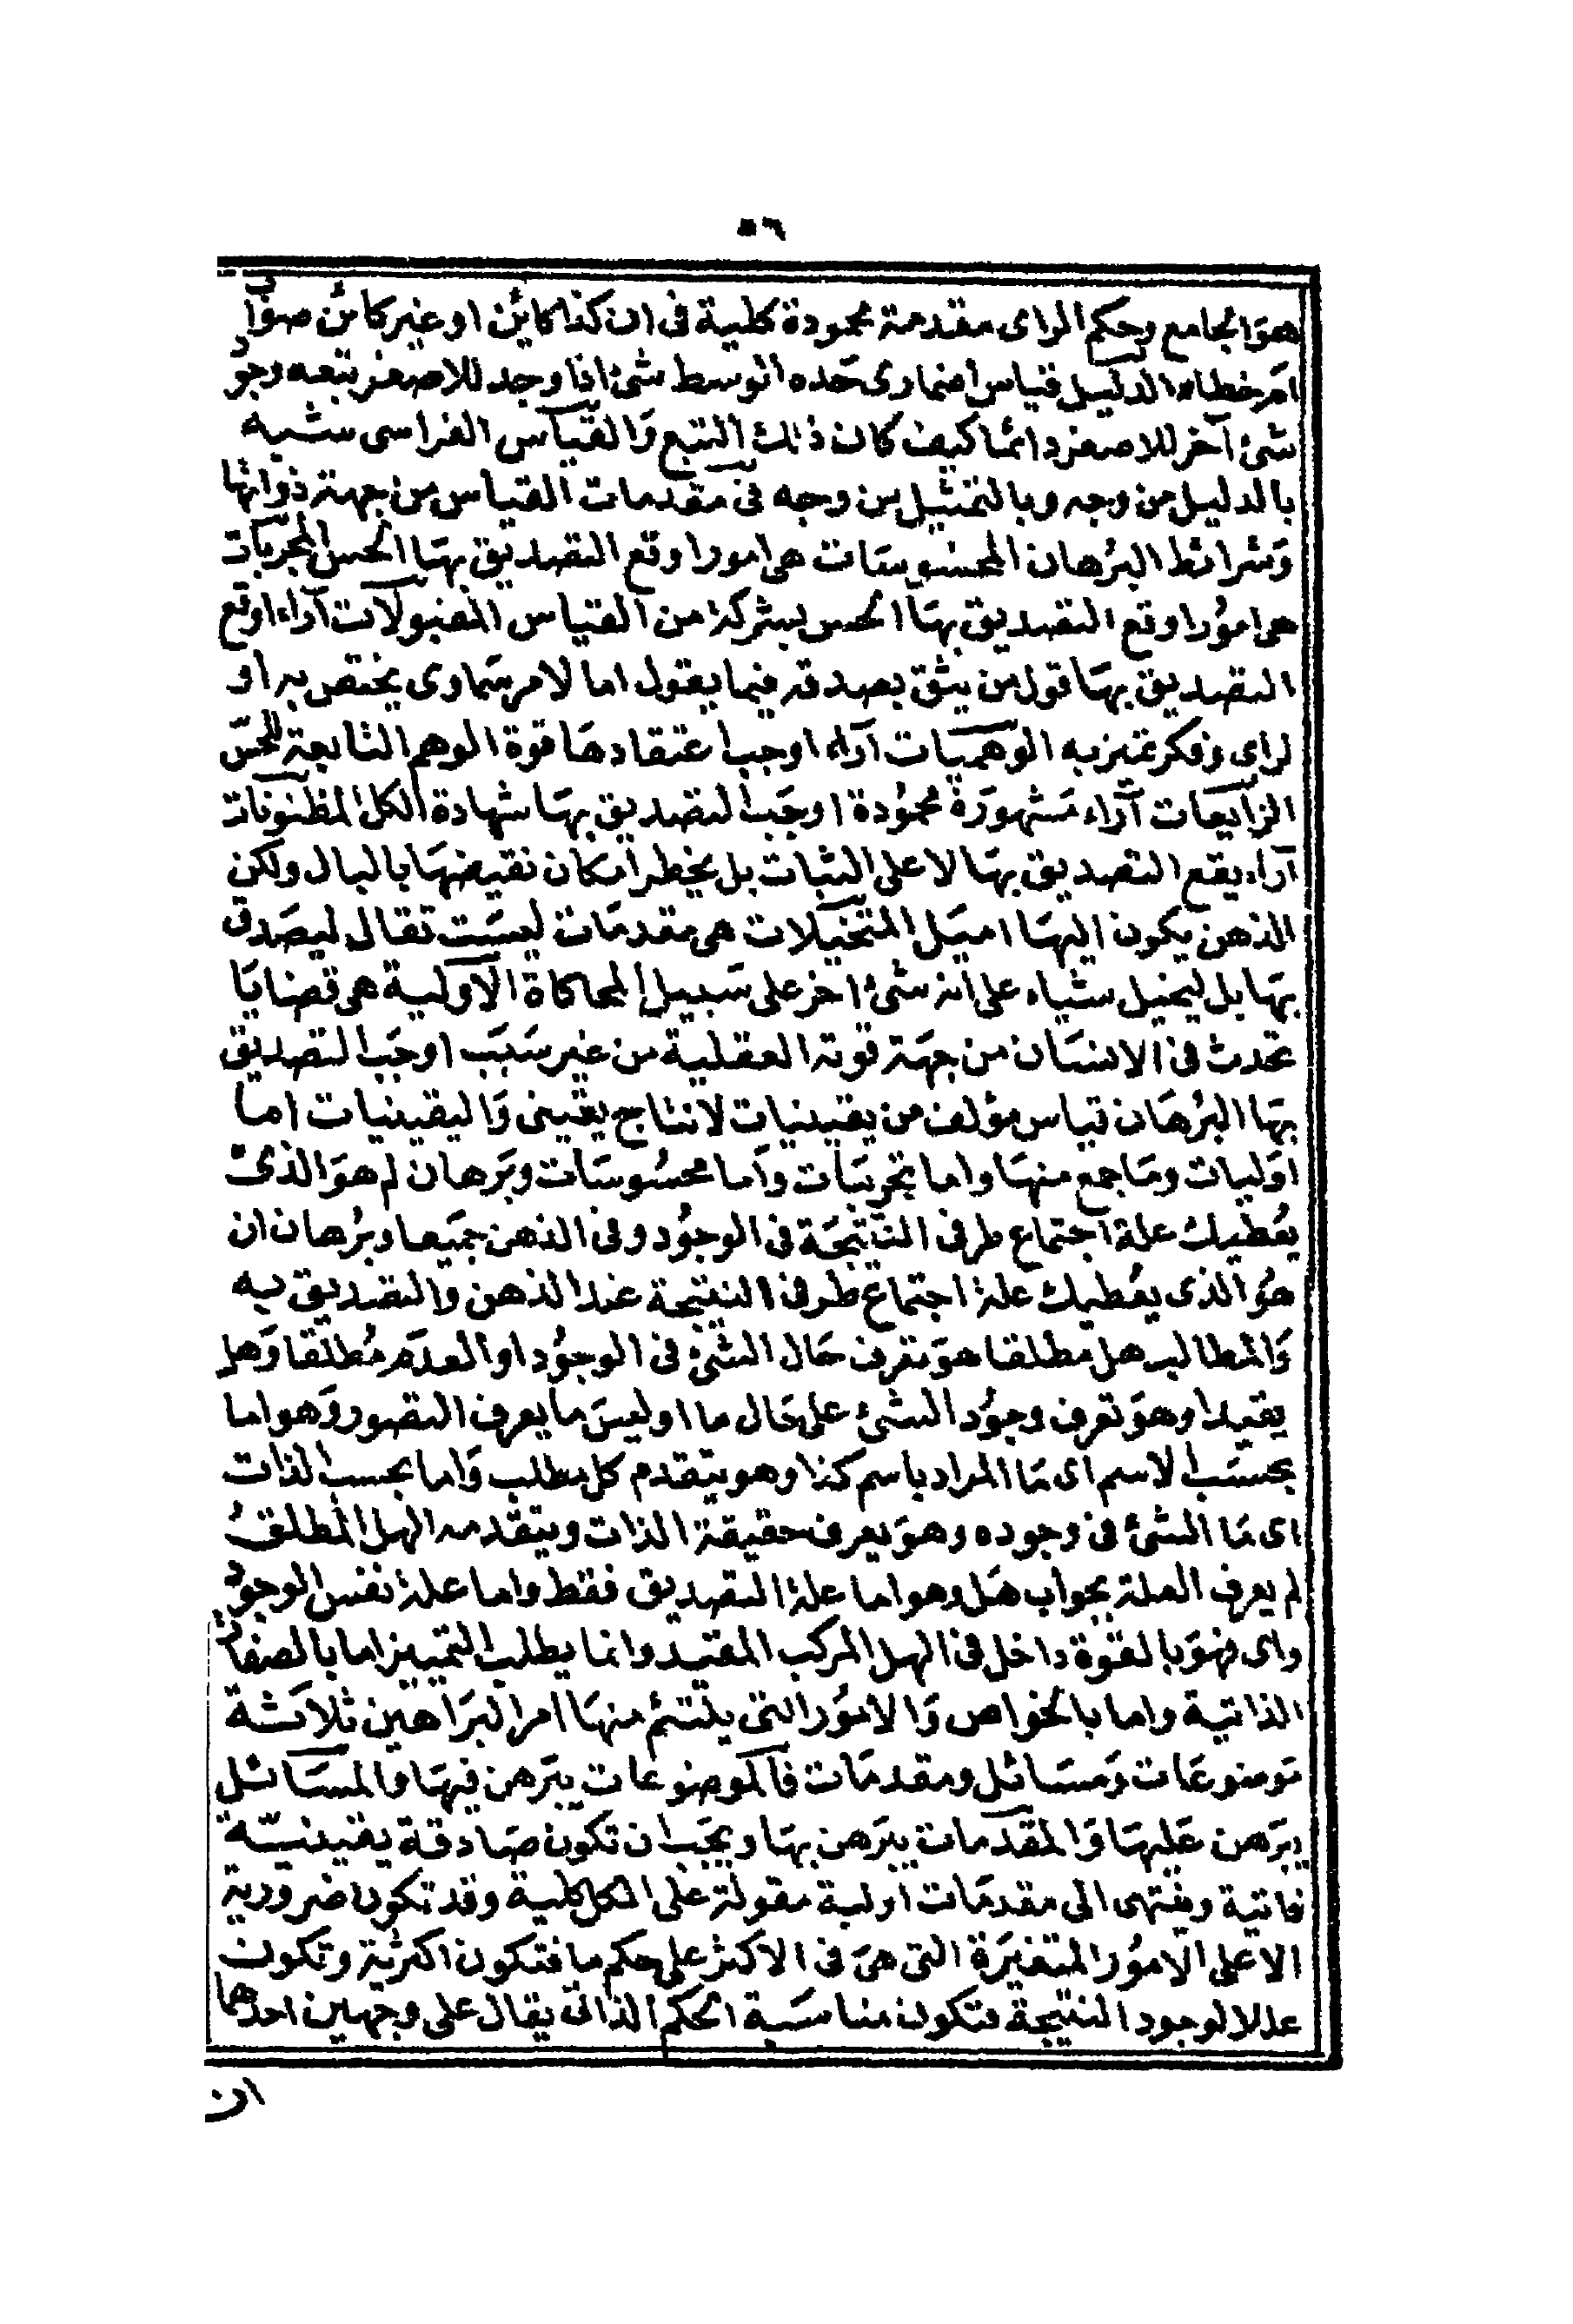 ٥٦
هوَ الجامع وحكم الراى مقدمة محمودة كلية فى ان كذا كائن او غير كائن صواب
ام خطاء الدليل قياس اضمارى حَده الوسط شئ اذا وجد للاصغر يتبعه وجود
شئ آخر للاصغر دائما كيف كان ذلك التبع وَالقيَاس الفراسى شبيه
بالدليل من وجه وبالتمثيل من وجه فى مقدمات القياس من جهة ذواتها
وَشرائط البُرهان المحسُوسَات هى امور اوقع التصديق بهَا الحس المجربَات
هى امُور اوقع التصديق بهَا الحس بشركة من القياس المقبولات آراء اوقع
التصديق بهَا قول من يثق بصدقه فيما يقول اما لامر سَماوى يختص به او
لراى وفكر تميز به الوهميات آراء اوجب اعتقادهَا قوة الوهم التابعة للحسّ
الزايعات آراء مَشهورَة محمُودة اوجَب التصديق بهَا شهادة الكل المظنونات
آراء يقع التصديق بهَا لا على الثبات بل يخطر امكان نقيضهَا بالبال ولكن
الذهن يكون اليهَا اميَل المتخيلات هى مقدمَات ليسَت تقال ليصَدق
بهَا بل ليخيل شياء على انه شئ اخر على سَبيل المحاكاة الاَولية هى قضايَا
تحدث فى الانسَان من جهَة قوته العقلية من غير سَبَب اوجَب التصديق
بهَا البُرهَان قياس مؤلف من يقينيات لانتاج يقينى وَاليقينيات اما
اوَليات ومَا جمع منهَا واما تجربيَات وَاما محسُوسَات وبَرهان لم هوَ الذى
يعُطيك علة اجتماع طرفى النتيجَة فى الوجوُد وفى الذهن جمَيعا وبرُهان ان
هوُ الذى يعُطيك علة اجتماع طرفى النتيجة عند الذهن والتصديق به
وَالمطالب هل مطلقا هوَ تعرف حَال الشئ فى الوجوُد او العدَم مُطلقا وَهل
يقيدا وهوَ تعرف وجوُد الشئ على حَال ما او ليسَ ما يعرف التصور وَهو اما
بحسَب الاسم اى مَا المراد باسم كذا وهو يتقدم كل مطلب وَاما بحسب الذات
اى مَا الشئ فى وجوده وهوَ يعرف حقيقة الذات ويتقدمه الهل المطلق
لم يعرف العلة بجواب هَل وهو اما علة التصديق فقط واما علة نفس الوجود
واى فهوَ بالقوة داخل فى الهل المركب المقيد وانما يطلب التمييز اما بالصفات
الذاتية واما بالخواص وَالامُور التى يلتئم منهَا امر البرَاهين ثلاثة
مَوضوعَات وَمسَائل ومقدمَات فالموضوعات يبَرهن فيهَا والمسَائل
يبرَهن عَليهَا وَالمقدمات يبَرهن بهَا ويجَب ان تكون صَادقة يقينيّة
ذاتية وينتهى الى مقدمَات اولية مقولة على الكل كلية وقد تكون ضرورية
الا على الامُور المتغيَرة التى هىَ فى الاكثر على حكم ما فتكون اكثرية وتكون
عللا لوجود النتيجة فتكون مناسَبة الحكم الذاتى يقال على وجهين احدهما
ان